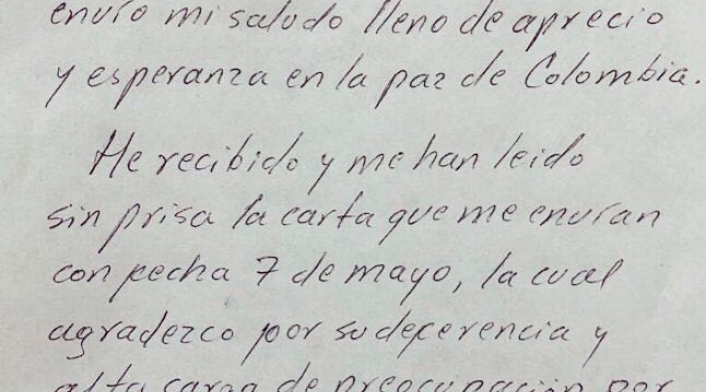 envío mi saludo lleno de aprecio
y esperanza en la paz de Colombia.
He recibido y me han leido
sin prisa la carta que me envían
con fecha 7 de mayo, la cual
agradezco por su deferencia y
alta carga de preocupación por